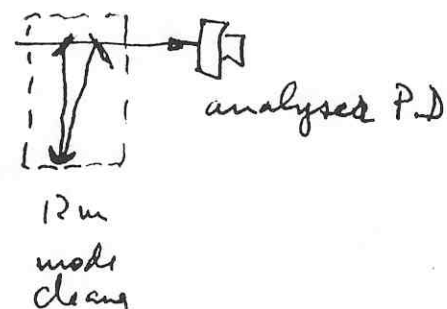 analyser P.D
12m
mode
cleang